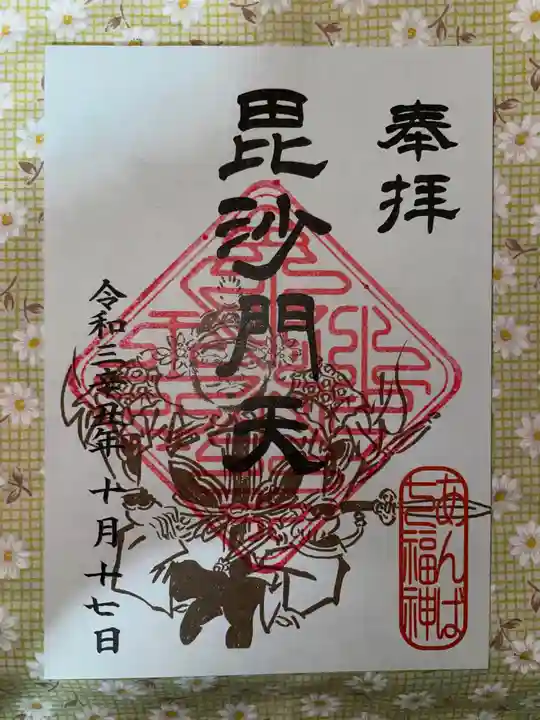 奉拝
毘沙門天
令和三辛丑年 十月十七日
あんば
七福神